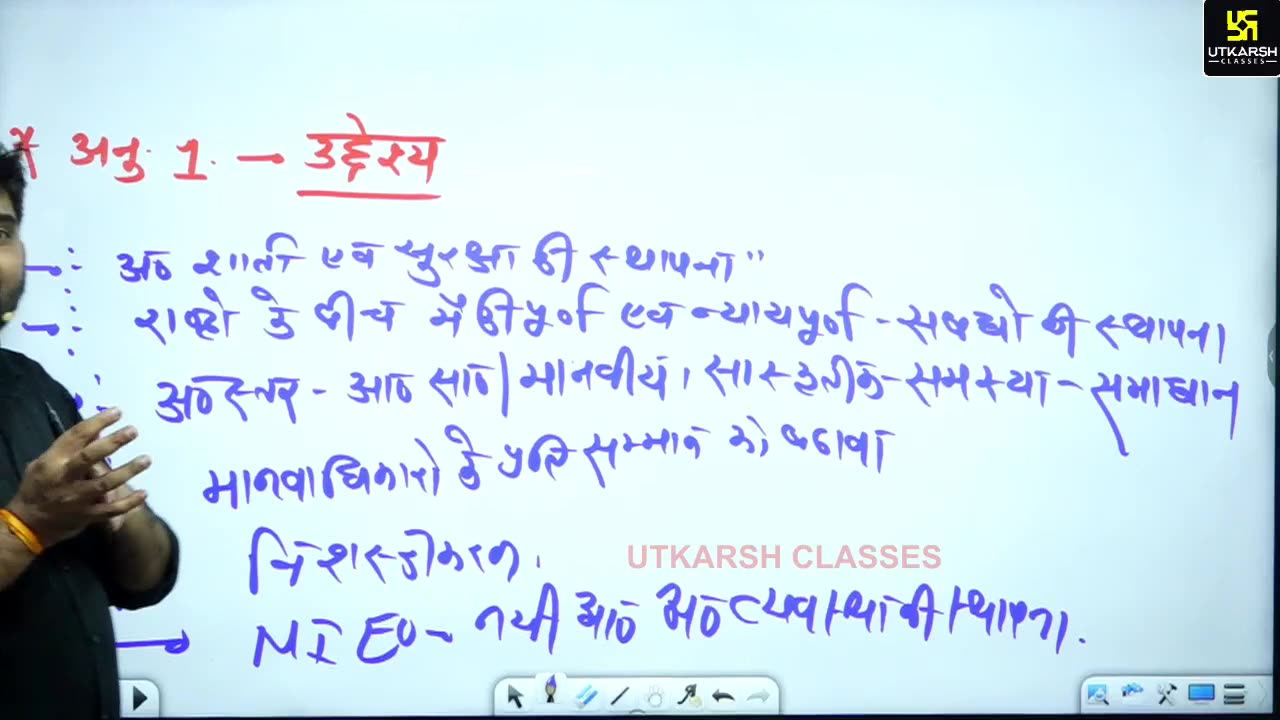 UTKARSH
CLASSES
* अनु. 1. → उद्देश्य
अं० शान्ति एवं सुरक्षा की स्थापना"
राष्ट्रो के बीच मैत्रीपूर्ण एवं न्यायपूर्ण - संबधो की स्थापना
अं० स्तर - आ० सा० / मानवीय, सांस्कृतीक - समस्या - समाधान
मानवाधिकारो के प्रति सम्मान को बढावा
निशस्त्रीकरण.
UTKARSH CLASSES
NIEO - नयी आ० अं० व्यवस्था की स्थापना.